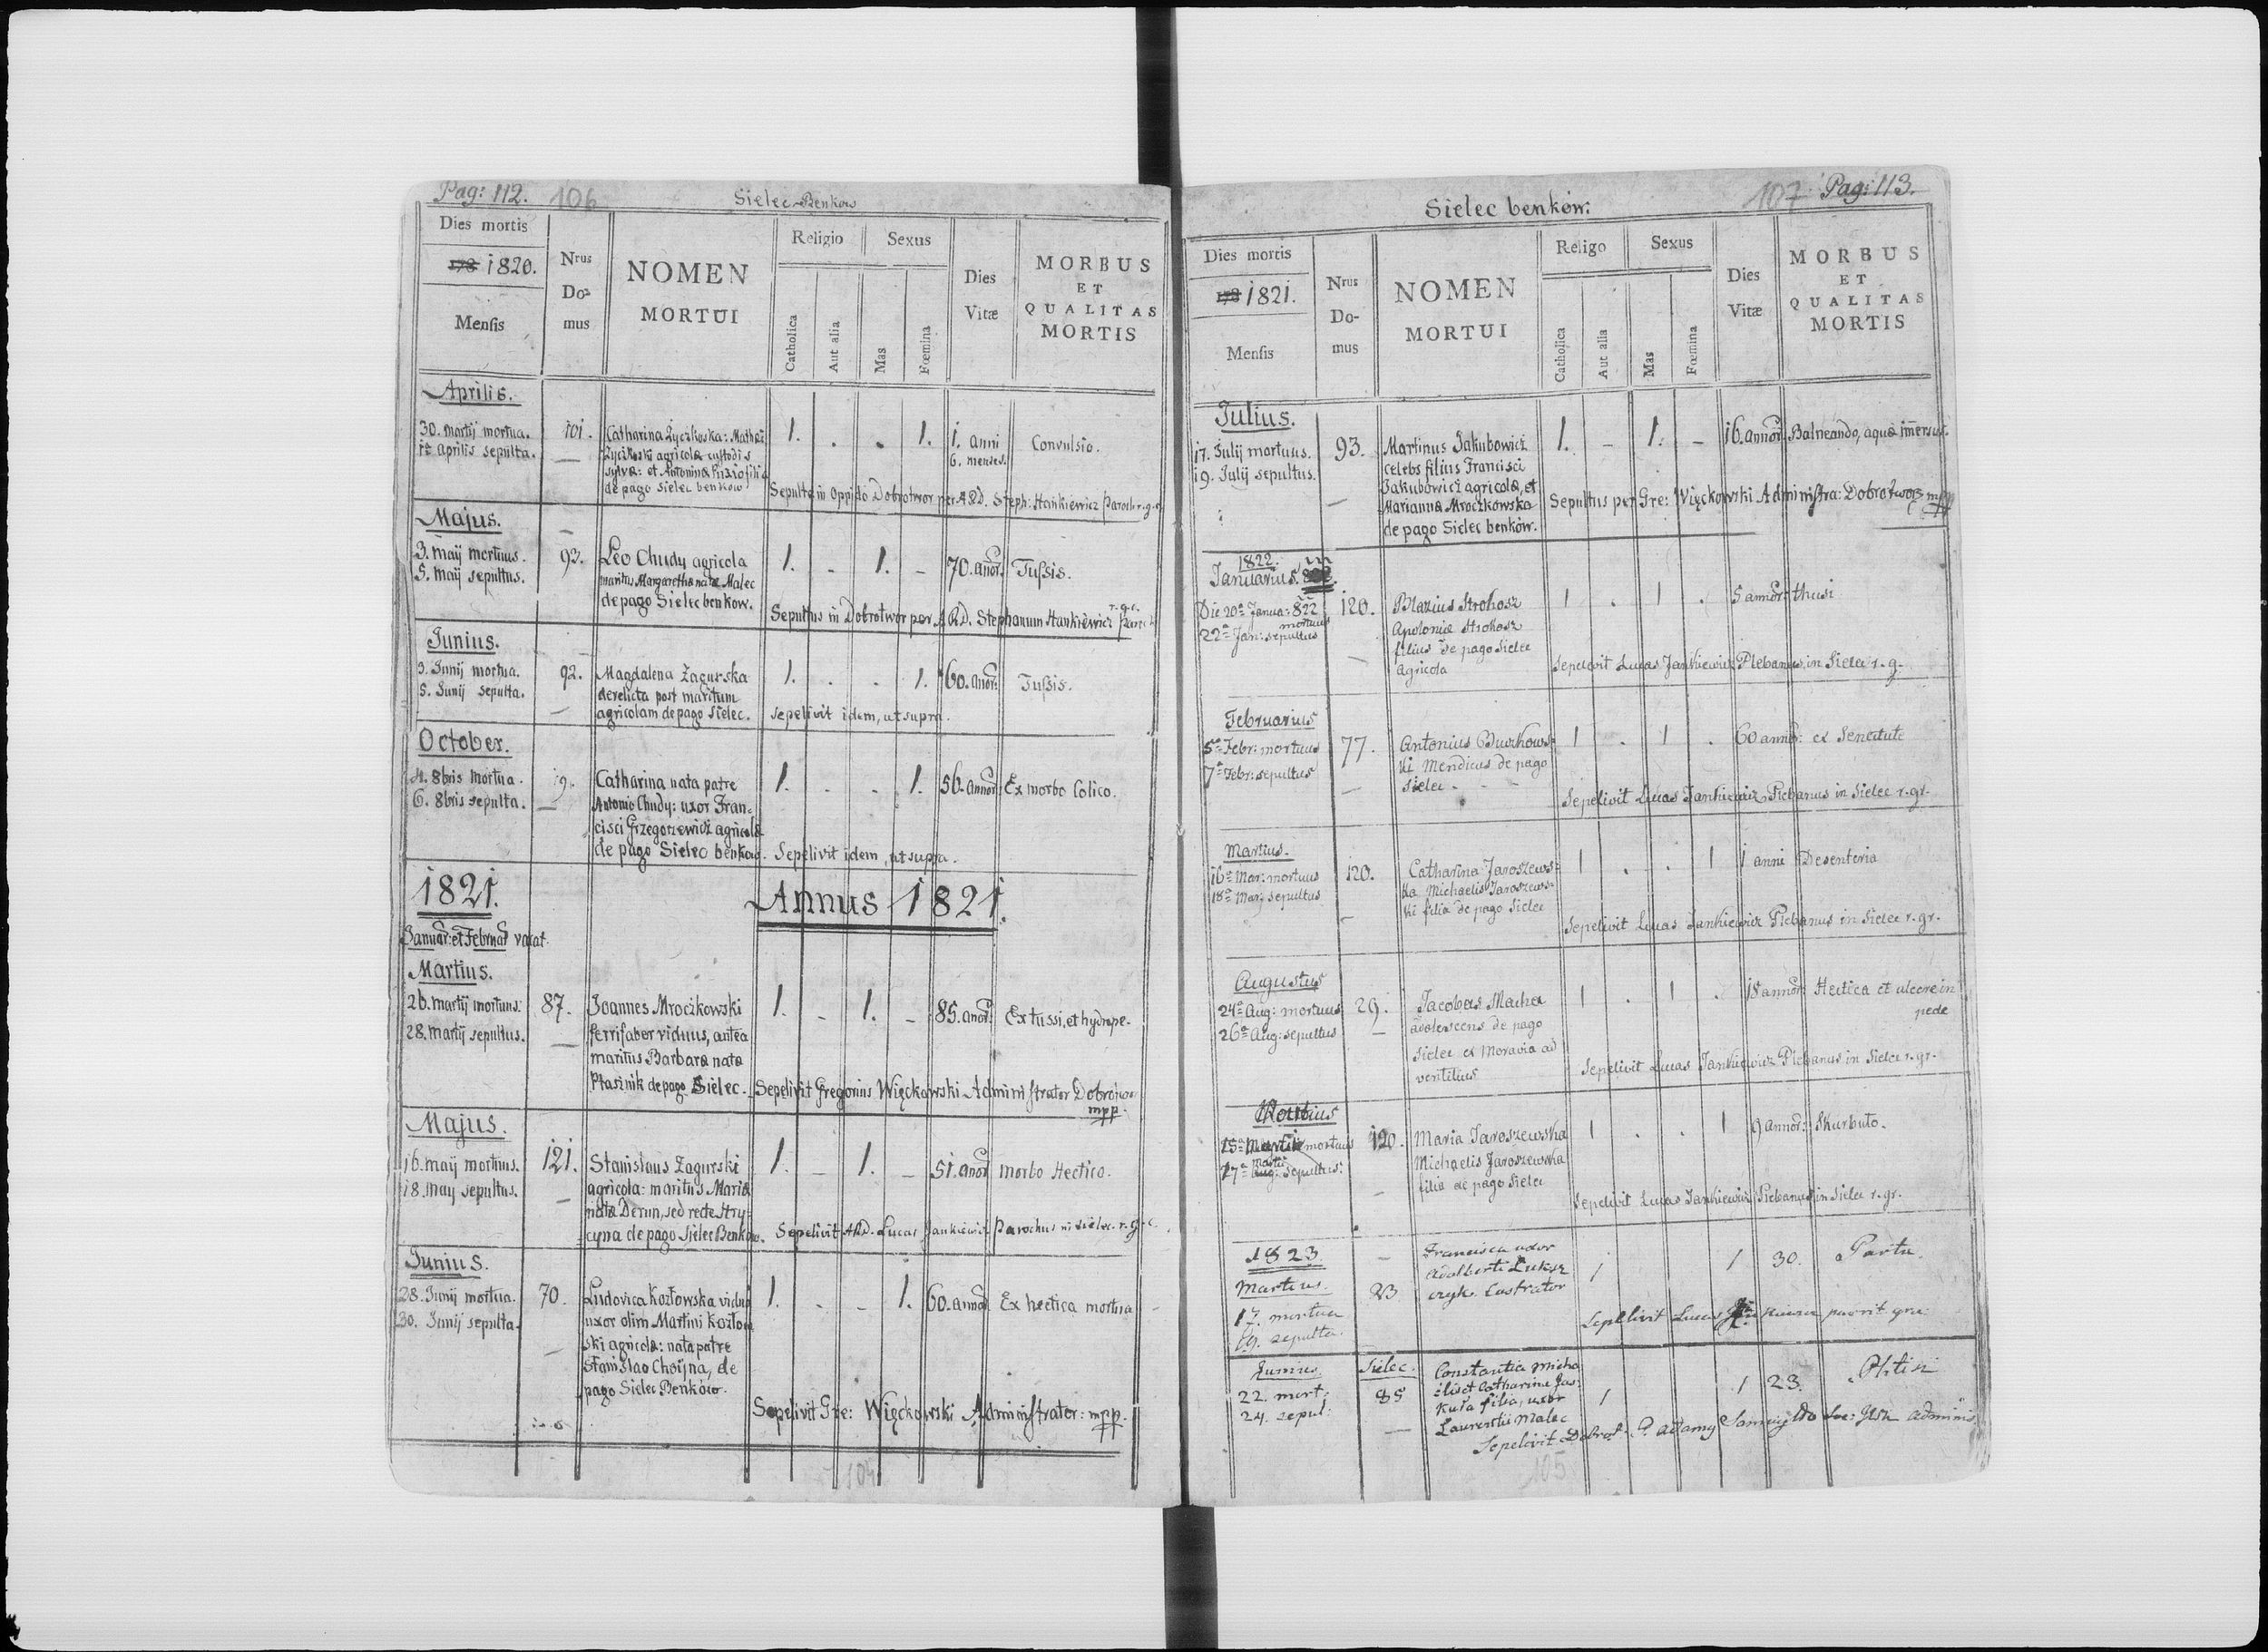 Pag: 112. 106
Sielec Benkow
Dies mortis
178 1820.
Mensis
Nrus
Do-
mus
NOMEN
MORTUI
Religio
Sexus
Catholica
Aut alia
Mas
Fœmina
Dies
Vitæ
MORBUS
ET
QUALITAS
MORTIS
Aprilis.
30. martij mortua.
1ª aprilis sepulta.
101.
Catharina Zyczkoska: Mathæi
Zyczkoski agricolæ custodis
sylvæ: et Antoninæ filia
de pago Sielec benkow
1. . . 1.
1. anni
6. menses.
Convulsio.
Sepulta in oppido Dobrotwor per A.R.D. Steph: Hankiewicz Paroch r.g.c.
Majus.
3. maij mortuus.
5. maij sepultus.
93.
Leo Chudy agricola
maritus Margarethæ natæ Malec
de pago Sielec benkow.
1. - 1. -
70. anor:
Tussis.
Sepultus in Dobrotwor per A.R.D. Stephanum Hankiewicz r.g.c.
Junius.
3. Junij mortua.
5. Junij sepulta.
92.
Magdalena Zagurska
derelicta post maritum
agricolam de pago Sielec.
1. . . 1.
60. anor:
Tussis.
Sepelivit idem, ut supra.
October.
4. 8bris mortua.
6. 8bris sepulta.
19.
Catharina nata patre
Antonio Chudy: uxor Fran=
cisci Grzegorzewicz agricolæ
de pago Sielec benkow.
1. . . 1.
56. annor
Ex morbo Colico.
Sepelivit idem, ut supra.
1821.
Annus 1821.
Januar: et Februar vacat.
Martius.
26. martij mortuus.
28. martij sepultus.
87.
Joannes Mroczkowski
ferrifaber viduus, antea
maritus Barbaræ natæ
Ptasznik de pago Sielec.
1. - 1. -
85. anor:
Ex tussi, et hydrope.
Sepelivit Gregorius Więckowski Administrator
mpp.
Majus.
16. maij mortuus.
18. maij sepultus.
121.
Stanislaus Zagurski
agricola: maritus Mariæ
natæ Derun, sed recte Stry=
cyna de pago Sielec Benkow.
1. - 1. -
51. anor
morbo Hectico.
Sepelivit A.R.D. Lucas Jankiewicz Parochus in Sielec. r.g.c.
Junius.
28. Junij mortua.
30. Junij sepulta.
70.
Ludovica Kozłowska vidua
uxor olim Martini Kozłow
ski agricolæ: nata patre
Stanislao Choijna, de
pago Sielec Benków.
1. . - 1.
60. annor
Ex hectica mortua
Sepelivit Gre: Więckowski Administrator: mpp.
104
107 Pag: 113.
Sielec benków.
Dies mortis
178 1821.
Mensis
Nrus
Do-
mus
NOMEN
MORTUI
Religo
Sexus
Catholica
Aut alia
Mas
Fœmina
Dies
Vitæ
MORBUS
ET
QUALITAS
MORTIS
Julius.
17. Julij mortuus.
19. Julij sepultus.
93.
Martinus Jakubowicz
celebs filius Francisci
Jakubowicz agricolæ, et
Mariannæ Mroczkowska
de pago Sielec benków.
1. - 1. -
16. annor
Balneando, aquæ immersus.
Sepultus per Gre: Więckowski Administra: mpp
1822.
Januarius.
Die 20ª Janua: 822
mortuus
22ª Jan: sepultus
120.
Blazius Strohosz
Apoloniæ Strohosz
filius de pago Sielec
agricola
1 . 1 .
5 annor:
thusi
Sepelivit Lucas Jankiewicz Plebanus in Sielec r.g.
Februarius
5ª Febr: mortuus
7ª Febr: sepultus
77.
Antonius
ki Mendicus de pago
Sielec
1 . 1 .
60 annor:
ex Senectute
Sepelivit Lucas Jankiewicz Plebanus in Sielec r.gr.
Martius.
16ª Mar: mortuus
18ª Mar: sepultus
120.
Catharina Jaroszews=
ka Michaelis Jaroszews=
ki filia de pago Sielec
1 . . 1
1 anni
Desenteria
Sepelivit Lucas Jankiewicz Plebanus in Sielec r.gr.
Augustus
24ª Aug: mortuus
26ª Aug: sepultus
29.
Jacobus Macha
adolescens de pago
Sielec ex Moravia ad
ventitius
1 . 1 .
18 annor:
Hectica et ulcere in
pede
Sepelivit Lucas Jankiewicz Plebanus in Sielec r.gr.
15ª mortuus
17ª sepultus:
120.
Maria Jaroszewska
Michaelis Jaroszewska
filia de pago Sielec
1 . . 1
9 annor:
Skurbuto.
Sepelivit Lucas Jankiewicz Plebanus in Sielec r.gr.
1823
Martius.
17. mortua
19. sepulta.
23
Francisca uxor
Adalberti
1 1
30.
Partu.
Sepelivit Lucas
Junius
22. mort:
24. sepul:
Sielec.
85
Constantia Micha
elis et Catharinæ Jas=
kuła filia, uxor
Laurentii Malec
1 1
23.
Phtisi
Sepelivit Dobrot.
105